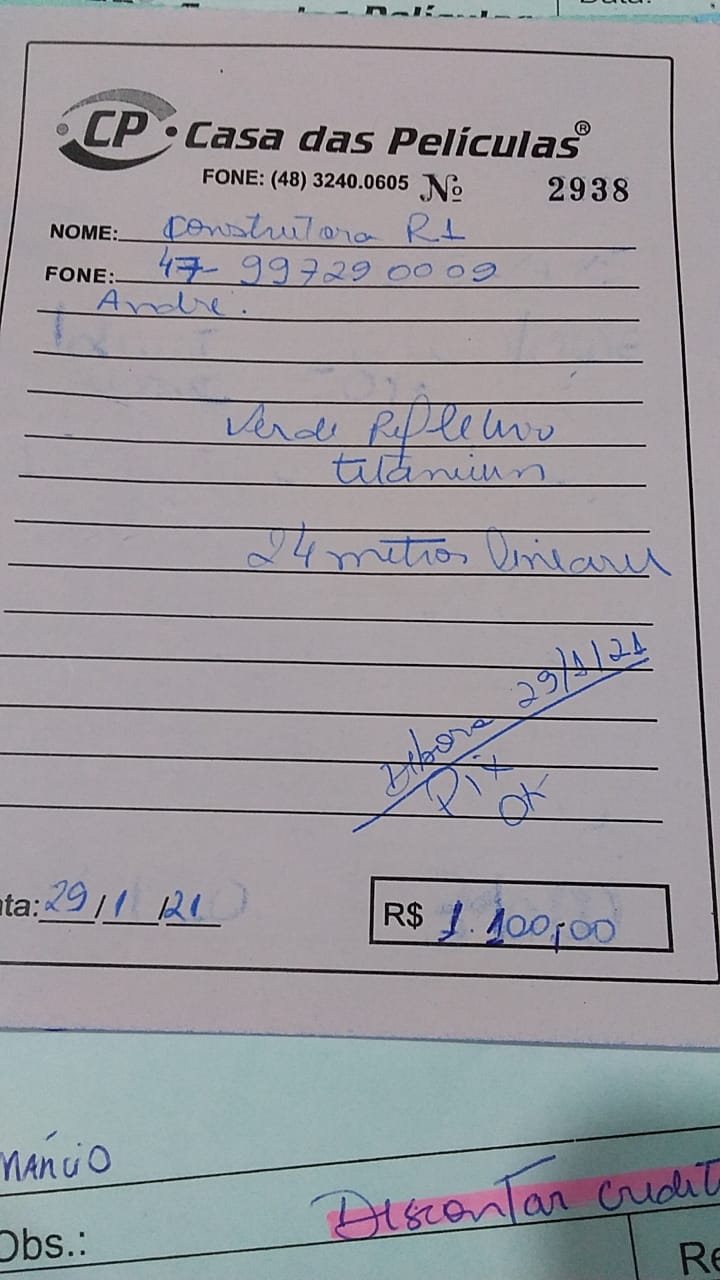 CP • Casa das Películas®
FONE: (48) 3240.0605 Nº 2938
NOME: Construtora R1
FONE: 47- 997290009
Andre.
Verde Refletivo
titâniun
24 metros lineares
Débora 29/1/21
Pix
OK
ta: 29/1/21
R$ 1.100,00
Descontar credit
Obs.:
Re